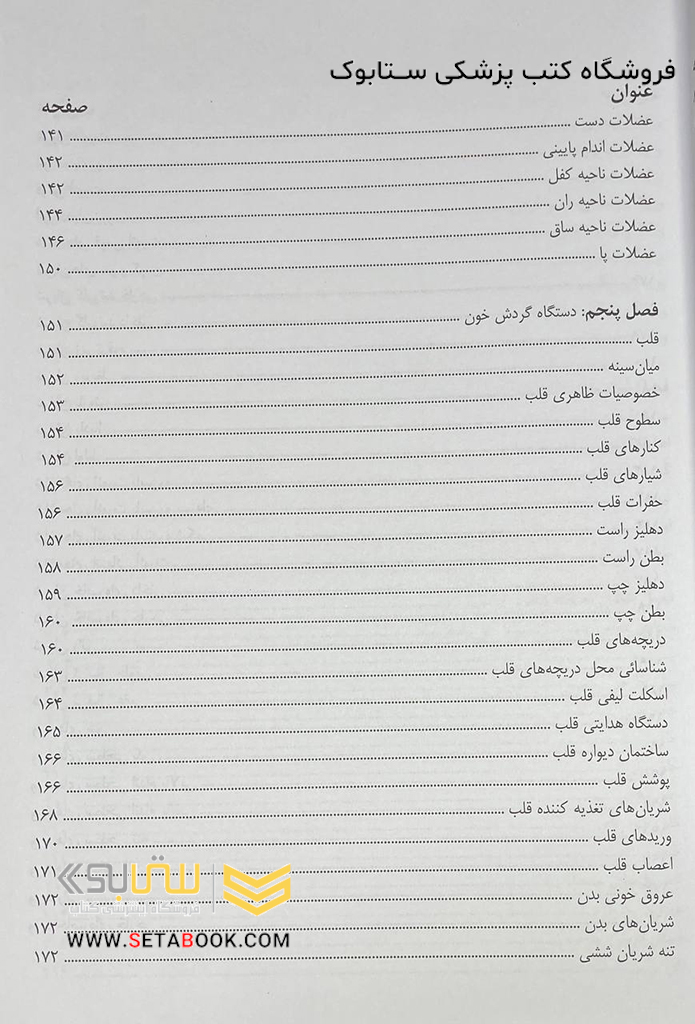 فروشگاه کتب پزشکی ستابوک
عنوان صفحه
عضلات دست ۱۴۱
عضلات اندام پایینی ۱۴۲
عضلات ناحیه کفل ۱۴۲
عضلات ناحیه ران ۱۴۴
عضلات ناحیه ساق ۱۴۶
عضلات پا ۱۵۰
فصل پنجم: دستگاه گردش خون ۱۵۱
قلب ۱۵۱
میان‌سینه ۱۵۲
خصوصیات ظاهری قلب ۱۵۳
سطوح قلب ۱۵۴
کنارهای قلب ۱۵۴
شیارهای قلب ۱۵۶
حفرات قلب ۱۵۶
دهلیز راست ۱۵۷
بطن راست ۱۵۸
دهلیز چپ ۱۵۹
بطن چپ ۱۶۰
دریچه‌های قلب ۱۶۰
شناسائی محل دریچه‌های قلب ۱۶۳
اسکلت لیفی قلب ۱۶۴
دستگاه هدایتی قلب ۱۶۵
ساختمان دیواره قلب ۱۶۶
پوشش قلب ۱۶۶
شریان‌های تغذیه کننده قلب ۱۶۸
وریدهای قلب ۱۷۰
اعصاب قلب ۱۷۱
عروق خونی بدن ۱۷۲
شریان‌های بدن ۱۷۲
تنه شریان ششی ۱۷۲
ستابوک
فروشگاه اینترنتی کتاب
WWW.SETABOOK.COM